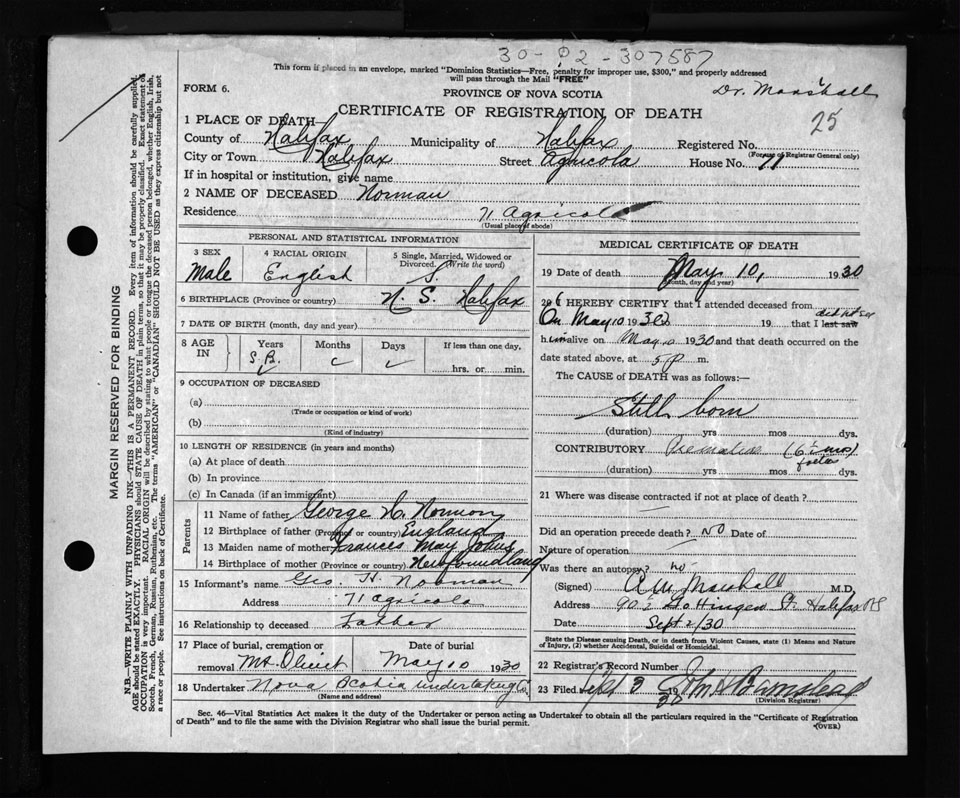 30-02-307587
This form if placed in an envelope, marked "Dominion Statistics—Free, penalty for improper use, $300," and properly addressed
will pass through the Mail "FREE"
FORM 6.
PROVINCE OF NOVA SCOTIA
Dr. Marshall
CERTIFICATE OF REGISTRATION OF DEATH
25
1 PLACE OF DEATH
County of Halifax Municipality of Halifax Registered No.
(For use of Registrar General only)
City or Town Halifax Street Agricola House No. 71
If in hospital or institution, give name
2 NAME OF DECEASED Norman
Residence 71 Agricola
(Usual place of abode)
PERSONAL AND STATISTICAL INFORMATION
3 SEX 4 RACIAL ORIGIN 5 Single, Married, Widowed or Divorced. (Write the word)
Male English S.
6 BIRTHPLACE (Province or country) N. S. Halifax
7 DATE OF BIRTH (month, day and year)
8 AGE IN Years Months Days If less than one day,
S.B. hrs. or min.
9 OCCUPATION OF DECEASED
(a)
(Trade or occupation or kind of work)
(b)
(Kind of industry)
10 LENGTH OF RESIDENCE (in years and months)
(a) At place of death
(b) In province
(c) In Canada (if an immigrant)
Parents
11 Name of father George H. Norman
12 Birthplace of father (Province or country) England
13 Maiden name of mother Frances May Johns
14 Birthplace of mother (Province or country) Newfoundland
15 Informant's name Geo. H. Norman
Address 71 Agricola
16 Relationship to deceased Father
17 Place of burial, cremation or removal Mt. Olivet Date of burial May 10 1930
18 Undertaker Nova Scotia Undertaking Co
(Name and address)
MEDICAL CERTIFICATE OF DEATH
19 Date of death May 10, 1930
(Month, day and year)
20 I HEREBY CERTIFY that I attended deceased from
On May 10 1930 19 that I last saw did not see
him alive on May 10 1930 and that death occurred on the
date stated above, at 5 P m.
The CAUSE of DEATH was as follows:—
Still born
(duration) yrs mos dys.
CONTRIBUTORY Premature (6½ mos)
foetus
(duration) yrs mos dys.
21 Where was disease contracted if not at place of death?
Did an operation precede death? No Date of
Nature of operation
Was there an autopsy? No
(Signed) A W Marshall M.D.
Address 902 Gottingen St. Halifax NS
Date Sept 2/30
State the Disease causing Death, or in death from Violent Causes, state (1) Means and Nature
of Injury, (2) whether Accidental, Suicidal or Homicidal.
22 Registrar's Record Number
23 Filed Sept 3 1930 John A Barnstead
(Division Registrar)
Sec. 46—Vital Statistics Act makes it the duty of the Undertaker or person acting as Undertaker to obtain all the particulars required in the "Certificate of Registration
of Death" and to file the same with the Division Registrar who shall issue the burial permit.
(OVER)
MARGIN RESERVED FOR BINDING
N.B.—WRITE PLAINLY WITH UNFADING INK—THIS IS A PERMANENT RECORD. Every item of information should be carefully supplied.
AGE should be stated EXACTLY. PHYSICIANS should STATE CAUSE OF DEATH in plain terms, so that it may be properly classified. Exact statement of
OCCUPATION is very important. RACIAL ORIGIN will be described by stating to what people or tongue the deceased person belonged, whether English, Irish,
Scotch, French, German, Russian, Ruthenian, etc. The terms "AMERICAN" or "CANADIAN" SHOULD NOT BE USED as they express citizenship but not
a race or people. See instructions on back of Certificate.